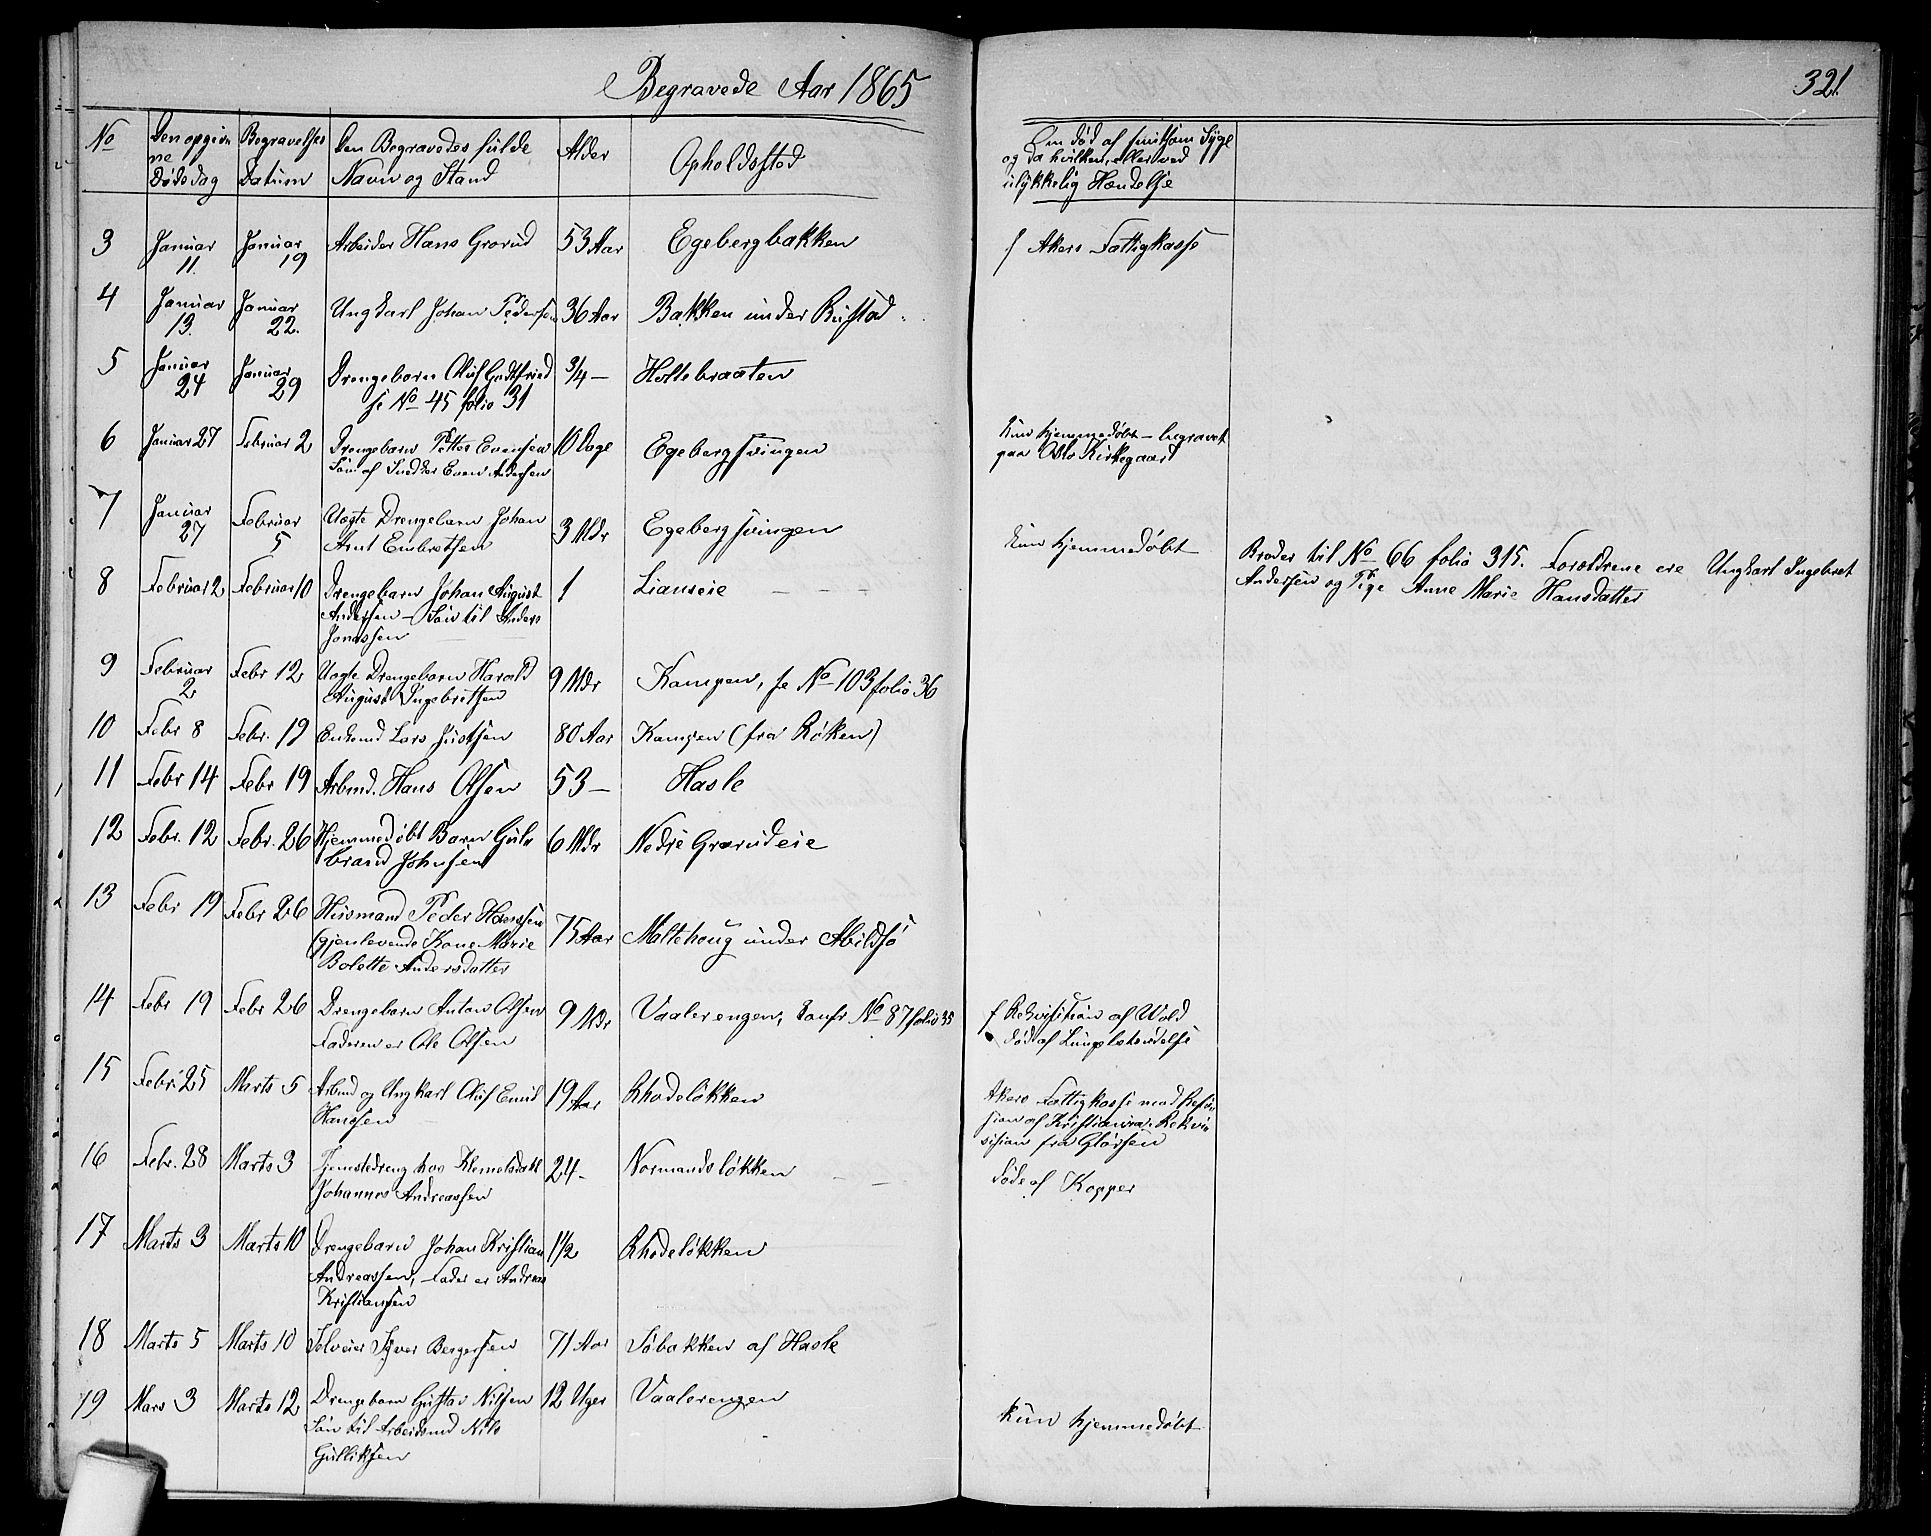 Begravede Aar 1865
321.
No
Den opgivne
Dødsdag
Begravelses
Datum
Den Begravedes fulde
Navn og Stand
Alder
Opholdsted
Om død af smitsom Syge
og da hvilken, eller ved
ulykkelig Hændelse
3 Januar 11. Januar 19 Arbeider Hans Grorud 53 Aar Egebergbakken f Akers Fattigkasse
4 Januar 13. Januar 22. Ungkarl Johan Pedersen 36 Aar Bakken under Rustad.
5 Januar 24 Januar 29 Drengebarn Oluf Godtfried 3/4 — Holtebraaten
se No 45 folio 31
6 Januar 27 Februar 2 Drengebarn Petter Evensen 10 Dage Egebergsvingen Kun hjemmedøbt – begravet
Søn af Snedker Even Andersen paa Oslo Kirkegaard
7 Januar 27 Februar 5 Uægte Drengebarn Johan 3 Mdr Egebergsvingen Kun hjemmedøbt
Arnt Embretsen
Broder til No 66 folio 315. Forældrene ere Ungkarl Ingebret
Andersen og Pige Anne Marie Hansdatter
8 Februar 2 Februar 10 Drengebarn Johan August 1 Lianseie – – –
Andersen – Søn til Anders
Jonassen
9 Februar 2 Febr 12 Uægte Drengebarn Harald 9 Mdr Kampen, se No 103 folio 36
August Ingebretsen
10 Febr 8 Febr. 19 Enkemd Lars Justsen 80 Aar Kampen (fra Røken)
11 Febr 14 Febr 19 Arbmd. Hans Olsen 53 – Hasle
12 Febr. 12 Febr. 26 Hjemmedøbt Barn Gul- 6 Mdr Nedre Grorudeie
brand Johnsen
13 Febr 19 Febr 26 Husmand Peder Hanssen 75 Aar Maltehaug under Abildsø
(gjenlevende Kone Marie
Bolette Andersdatter
14 Febr 19 Febr 26 Drengebarn Anton Olsen 9 Mdr Vaalerengen, Confr No 87 folio 35 f Rekvisition af Wold
Faderen er Ole Olsen død af Lungebetændelse
15 Febr. 25 Marts 5 Arbmd og Ungkarl Oluf Emil 19 Aar Rhodeløkken Akers Fattigkasse med Refu-
Hanssen sion af Kristiania. Rekvi-
sision fra Glørsen
16 Febr. 28 Marts 3 Tjenestedreng hos 24 – Normandsløkken – – Døde af Kopper
Johannes Andreassen
17 Marts 3 Marts 10 Drengebarn Johan Kristian 1 1/2 Rhodeløkken
Andreassen, Fader er Andreas
Kristiansen
18 Marts 5 Marts 10 Selveier Syver Bergersen 71 Aar Søbakken af Hasle
19 Mars 3 Marts 12 Drengebarn Gustav Nilsen 12 Uger Vaalerengen Kun hjemmedøbt
Søn til Arbeidsmd Nils
Gulliksen